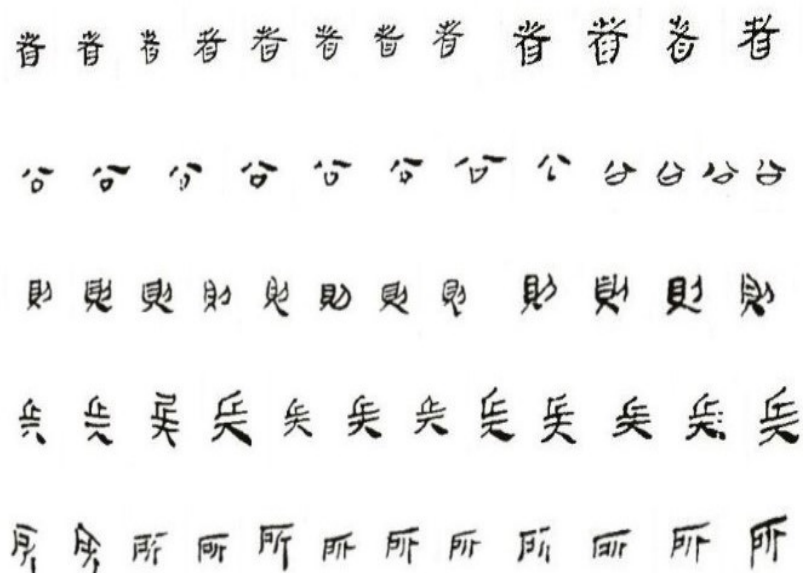 者者者者者者者者者者者者
公公公公公公公公公公公公
則則則則則則則則則則則則
兵兵兵兵兵兵兵兵兵兵兵兵
所所所所所所所所所所所所